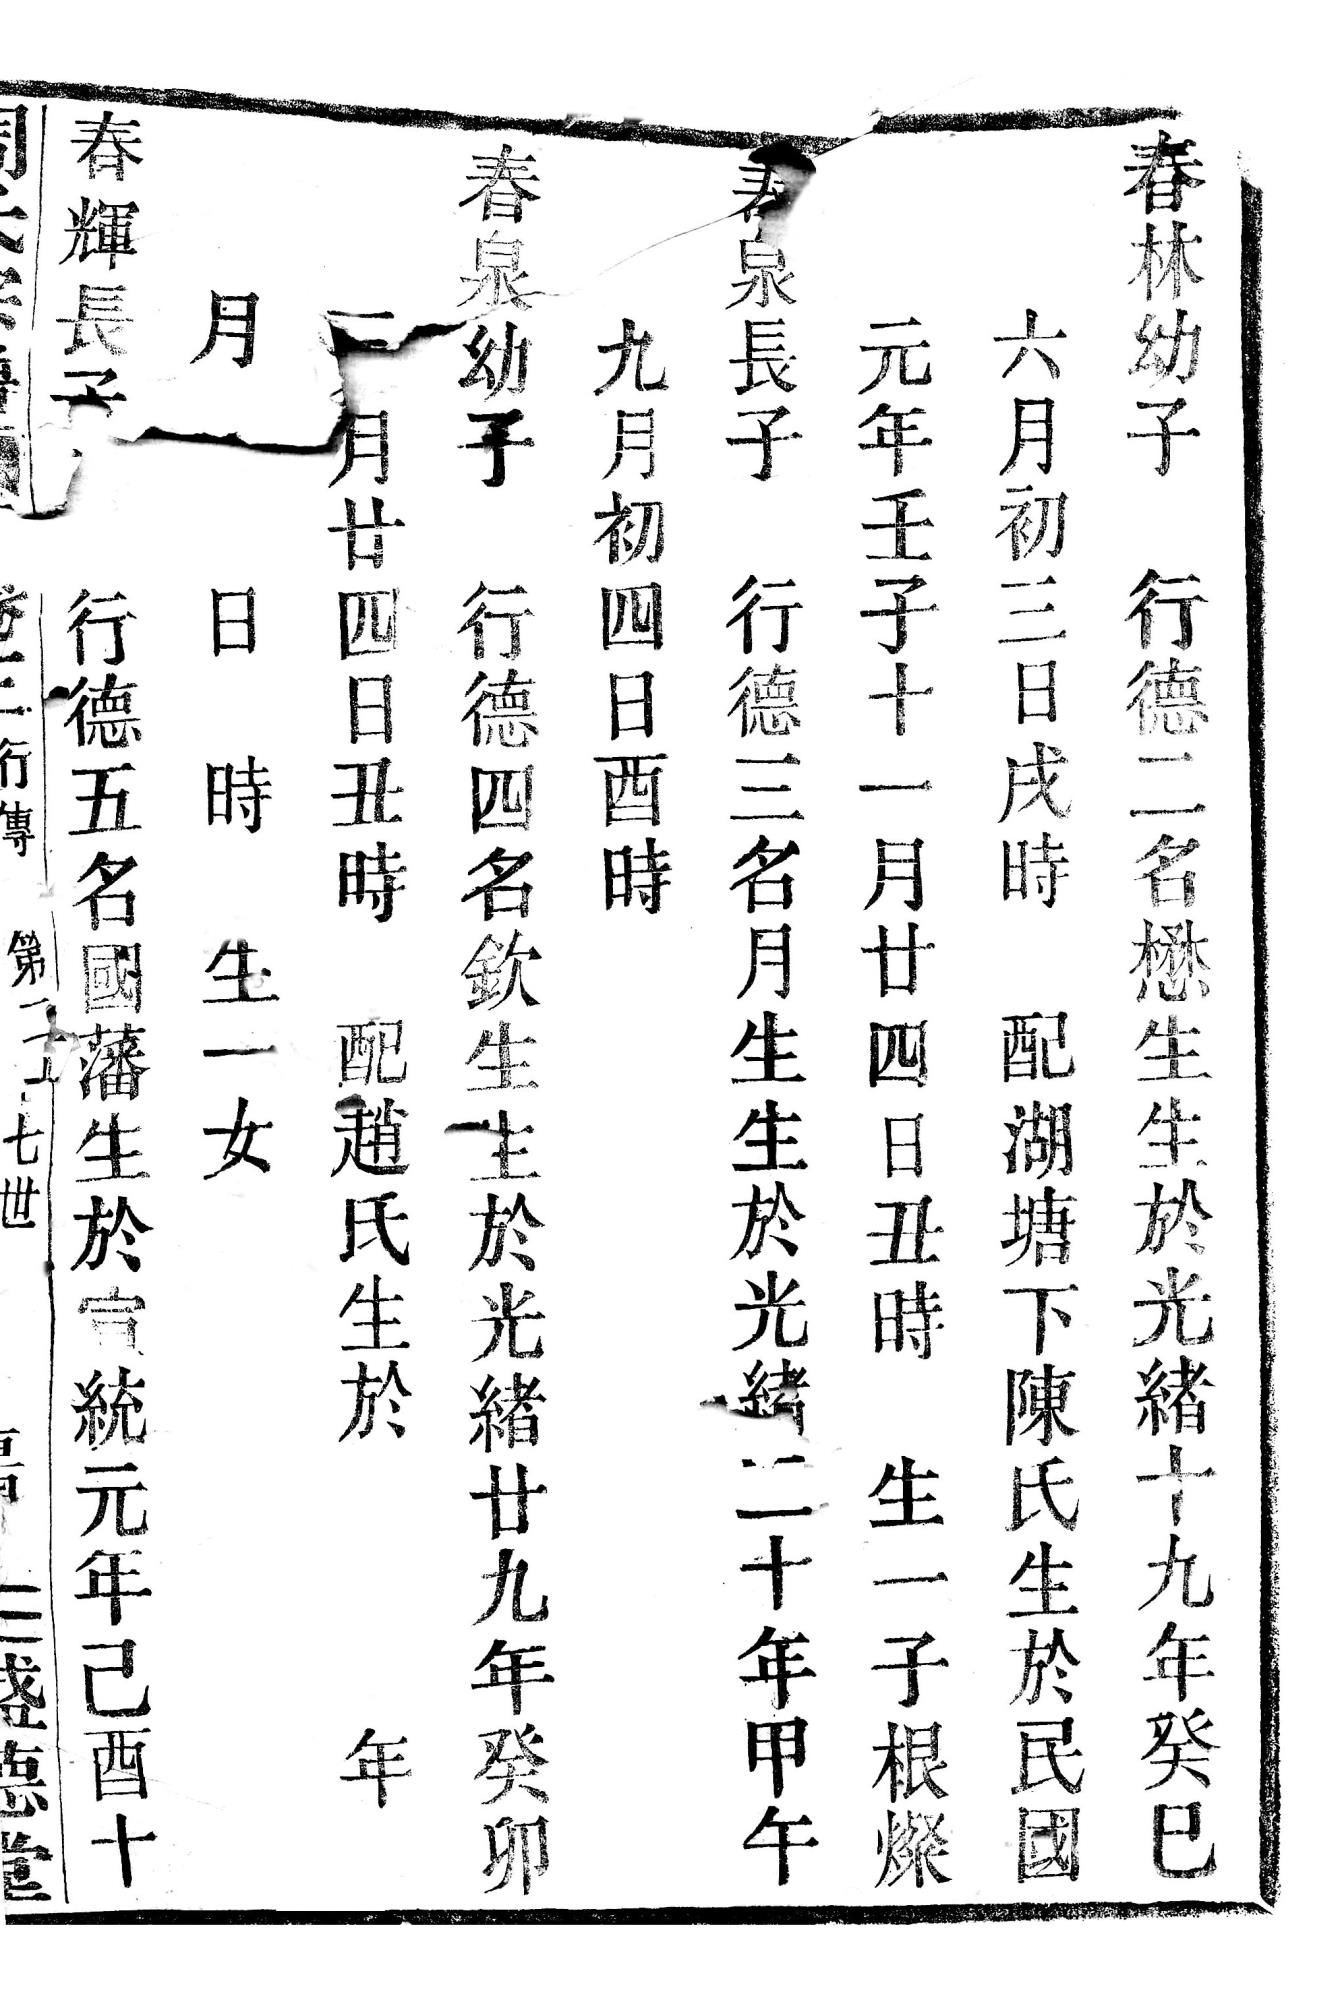 春林幼子　行德二名懋生生於光緒十九年癸巳
六月初三日戌時　配湖塘下陳氏生於民國
元年壬子十一月廿四日丑時　生一子根燦
春泉長子　行德三名月生生於光緒二十年甲午
九月初四日酉時
春泉幼子　行德四名欽生生於光緒廿九年癸卯
三月廿四日丑時　配趙氏生於　年
月　日　時　生一女
春輝長子　行德五名國藩生於宣統元年己酉十
行傳　第二十七世　盛德堂